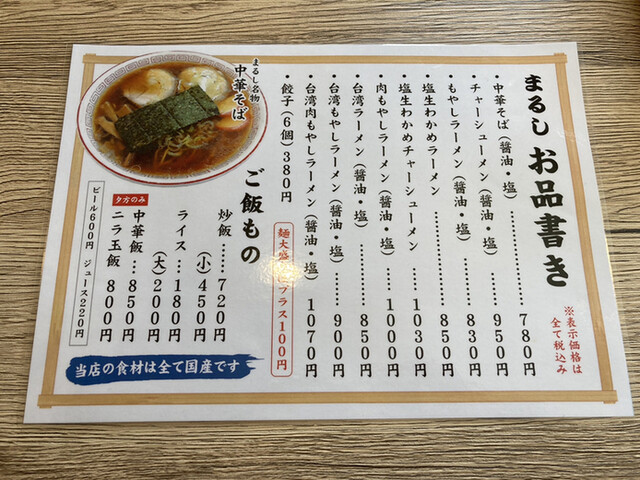 まるし お品書き
※表示価格は
全て税込み
・中華そば（醤油・塩）………780円
・チャーシューメン（醤油・塩）……950円
・もやしラーメン（醤油・塩）……830円
・塩生わかめラーメン………850円
・塩生わかめチャーシューメン……1030円
・肉もやしラーメン（醤油・塩）……1000円
・台湾ラーメン（醤油・塩）………850円
・台湾もやしラーメン（醤油・塩）……900円
・台湾肉もやしラーメン（醤油・塩）1070円
・餃子（6個）380円
麺大盛 プラス100円
まるし名物
中華そば
ご飯もの
炒飯……720円
（小）450円
ライス…180円
（大）200円
夕方のみ
中華飯…850円
ニラ玉飯 800円
ビール600円 ジュース220円
当店の食材は全て国産です